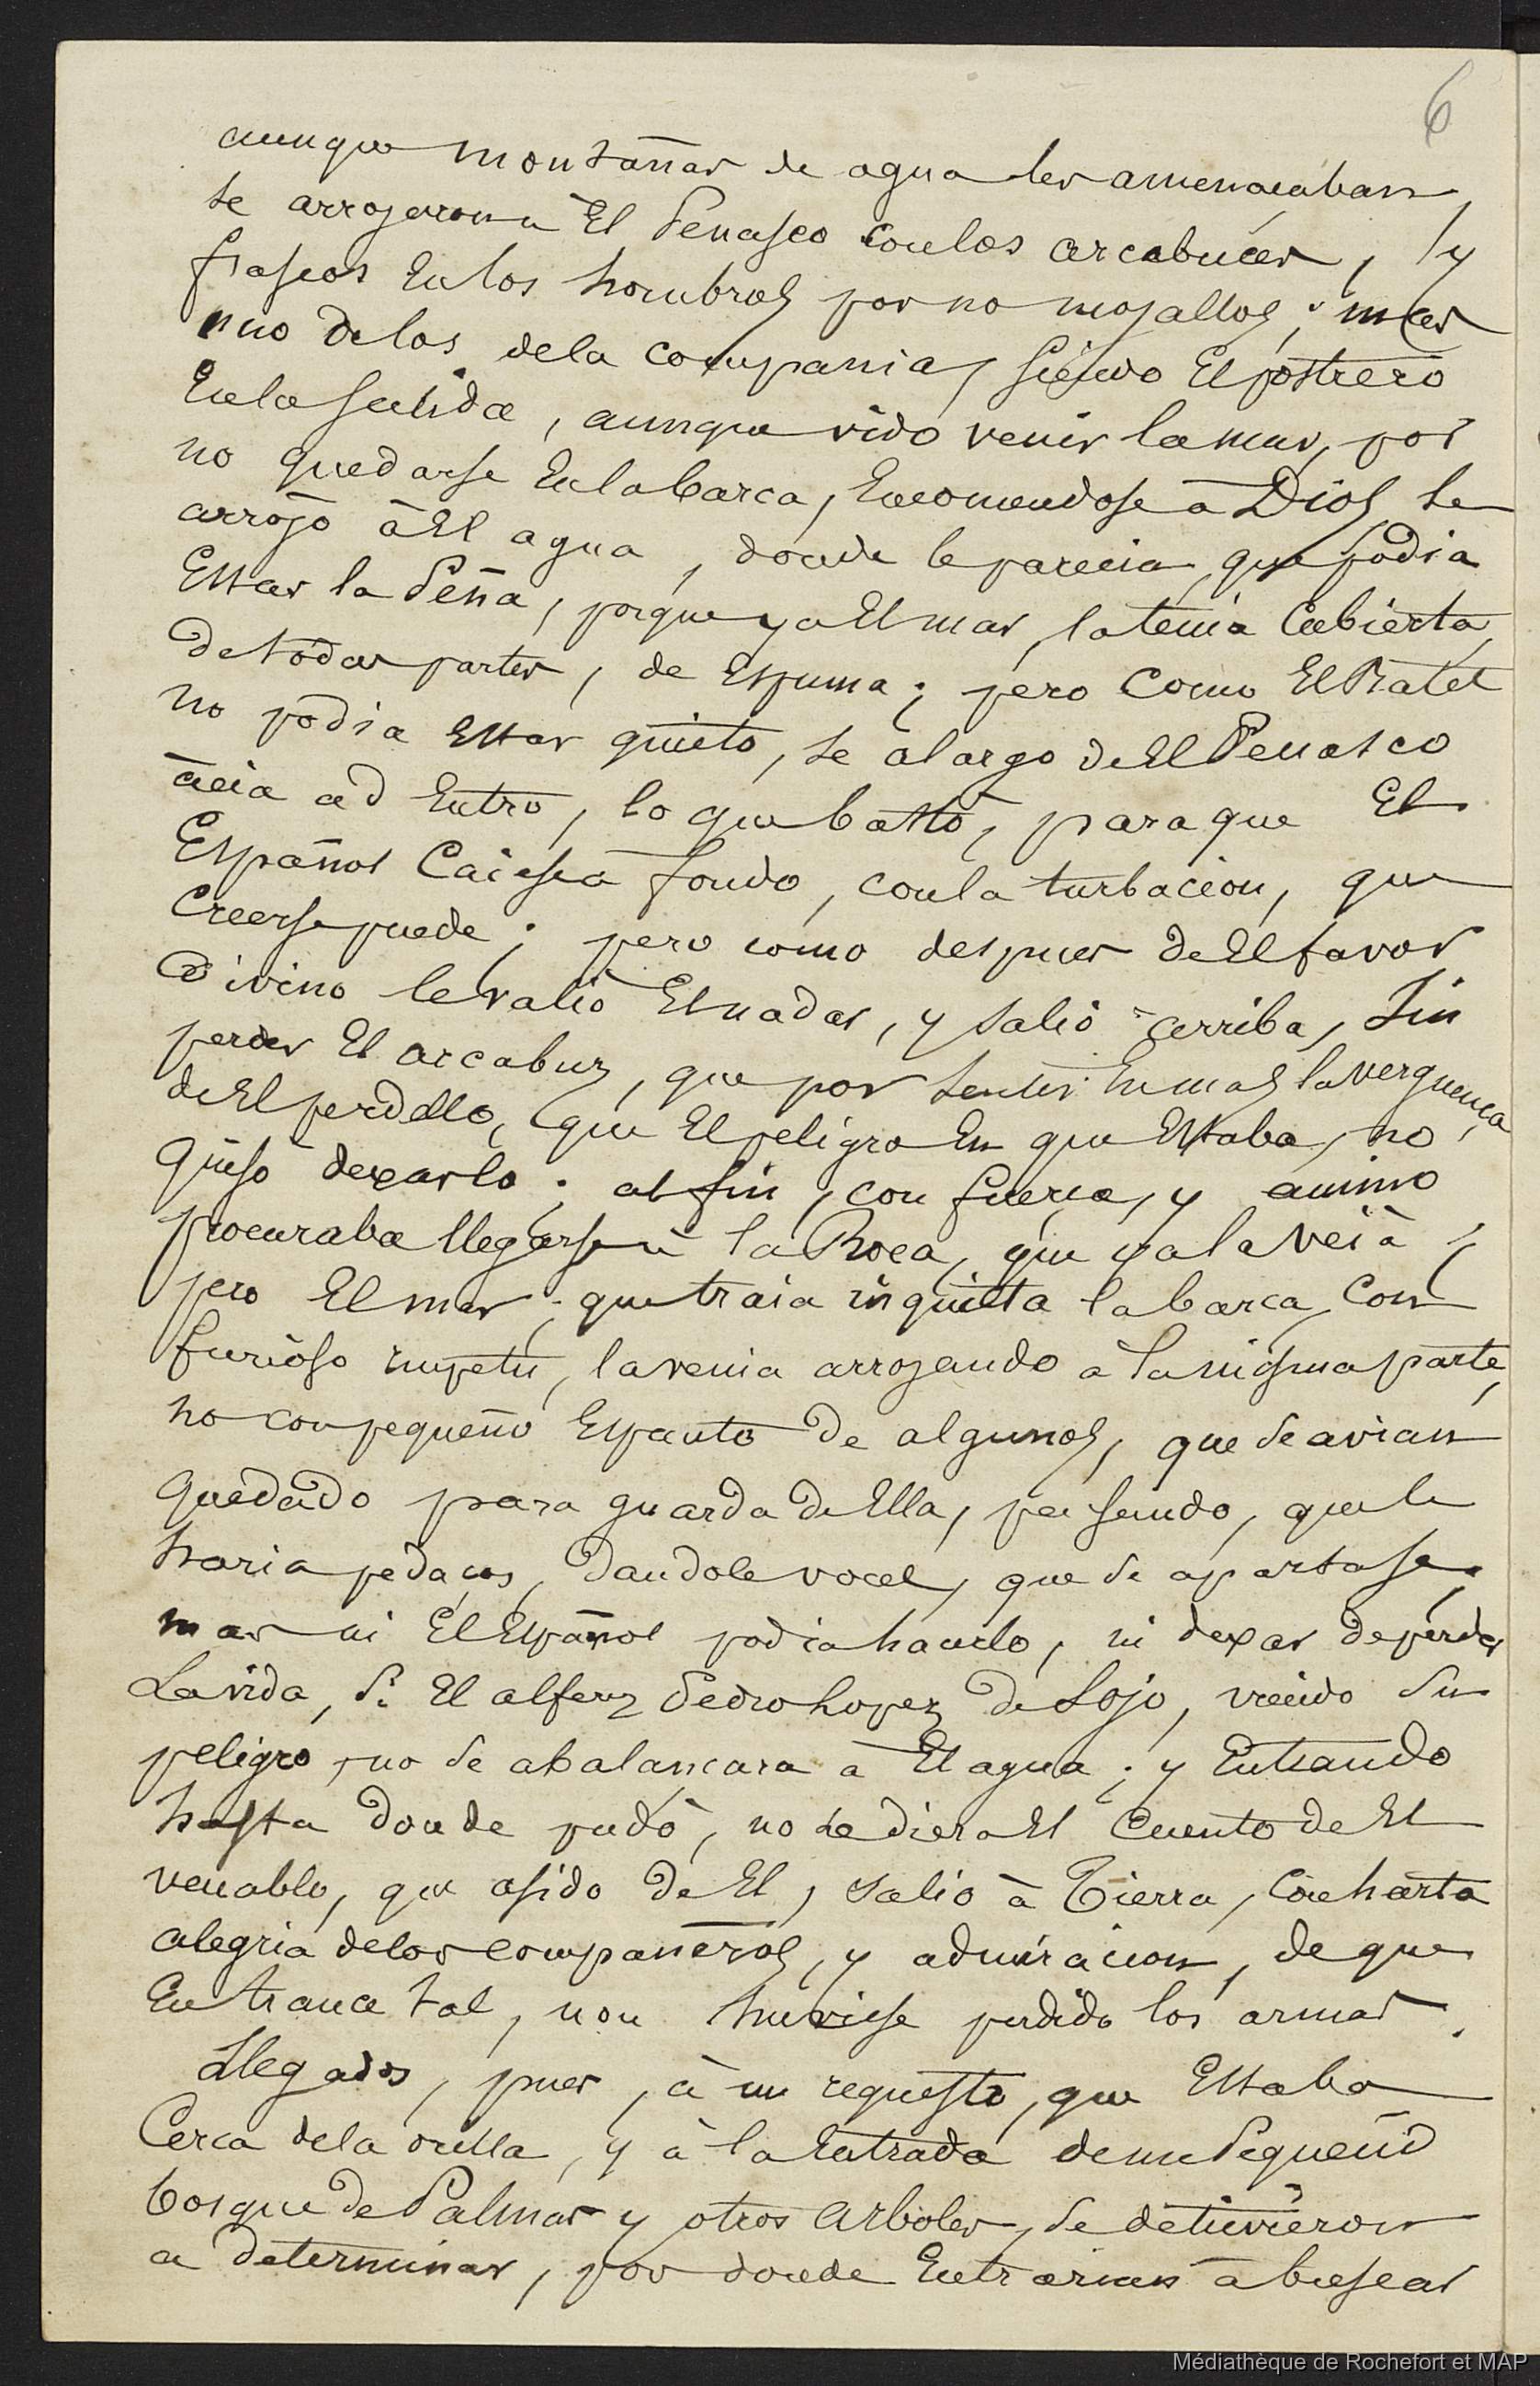 6
aunque montañas de agua les amenacaban,
se arrojaron a El Penasco con los arcabuces, y
frascos En los hombros por no mojallos; mas
uno de los de la compania, siendo El postrero
En la salida, aunque vido venir la mar, por
no quedarse En la barca, Encomendose à Dios, se
arrojò à El agua, donde le parecia, que podia
Estar la Peña, porque ya El mar, la tenia Cubierta,
de todas partes, de Espuma; pero Como El Batel
no podia Estar quieto, se alargo de El Penasco
àcia adentro, lo que bastò, para que El
Español Caiese à fondo, con la turbacion, que
Creerse puede; pero como despues de El favor
Divino le valiò El nadar, y saliò arriba, Sin
perder El arcabuz, que por sentir En mas la verguença
de El perdello, que El peligro En que Estaba, no
quiso dexarlo; al fin, con fuerça, y animo
procuraba llegarse à la Roca, que ya la veià;
pero El mar, que traia inquieta la barca, Con
furioso impetu, la venia arrojando a la misma parte,
no con pequeño Espanto de algunos, que se avian
quedado para guarda de Ella, pensando, que le
haria pedaços, dandole voces, que se apartase;
mas ni El Español podia hacerlo, ni dexar de perder
La vida, si El alferez Pedro Lopez de Sojo, viendo su
peligro, no se abalançara a El agua; y Entrando
hasta donde pudò, no le diera El Cuento de El
venablo, que asido de El, saliò à Tierra, Con harta
alegria de los compañeros, y admiracion, de que
En trance tal, non huviese perdido las armas.
Llegados, pues, à un repuesto, que Estaba
Cerca de la orilla, y à la Entrada de un Pequeño
bosque de Palmas y otros Arboles, se detuvieron
a determinar, por donde Entrarian à buscar
Médiathèque de Rochefort et MAP